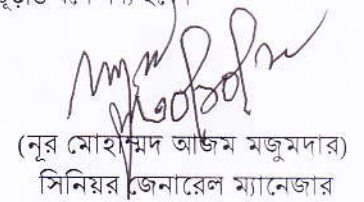 (নূর মোহাম্মদ আজম মজুমদার)
সিনিয়র জেনারেল ম্যানেজার